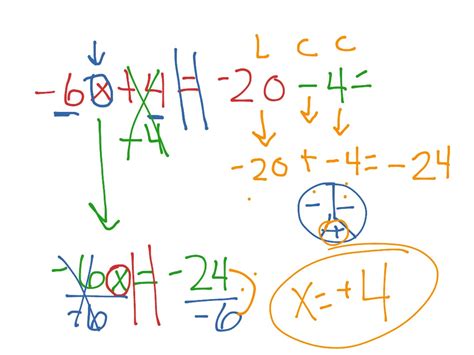 L C C
-6x+4 = -20 -4=
-4
-20 + -4 = -24
- -
+
-6x = -24
-6 -6
x = +4